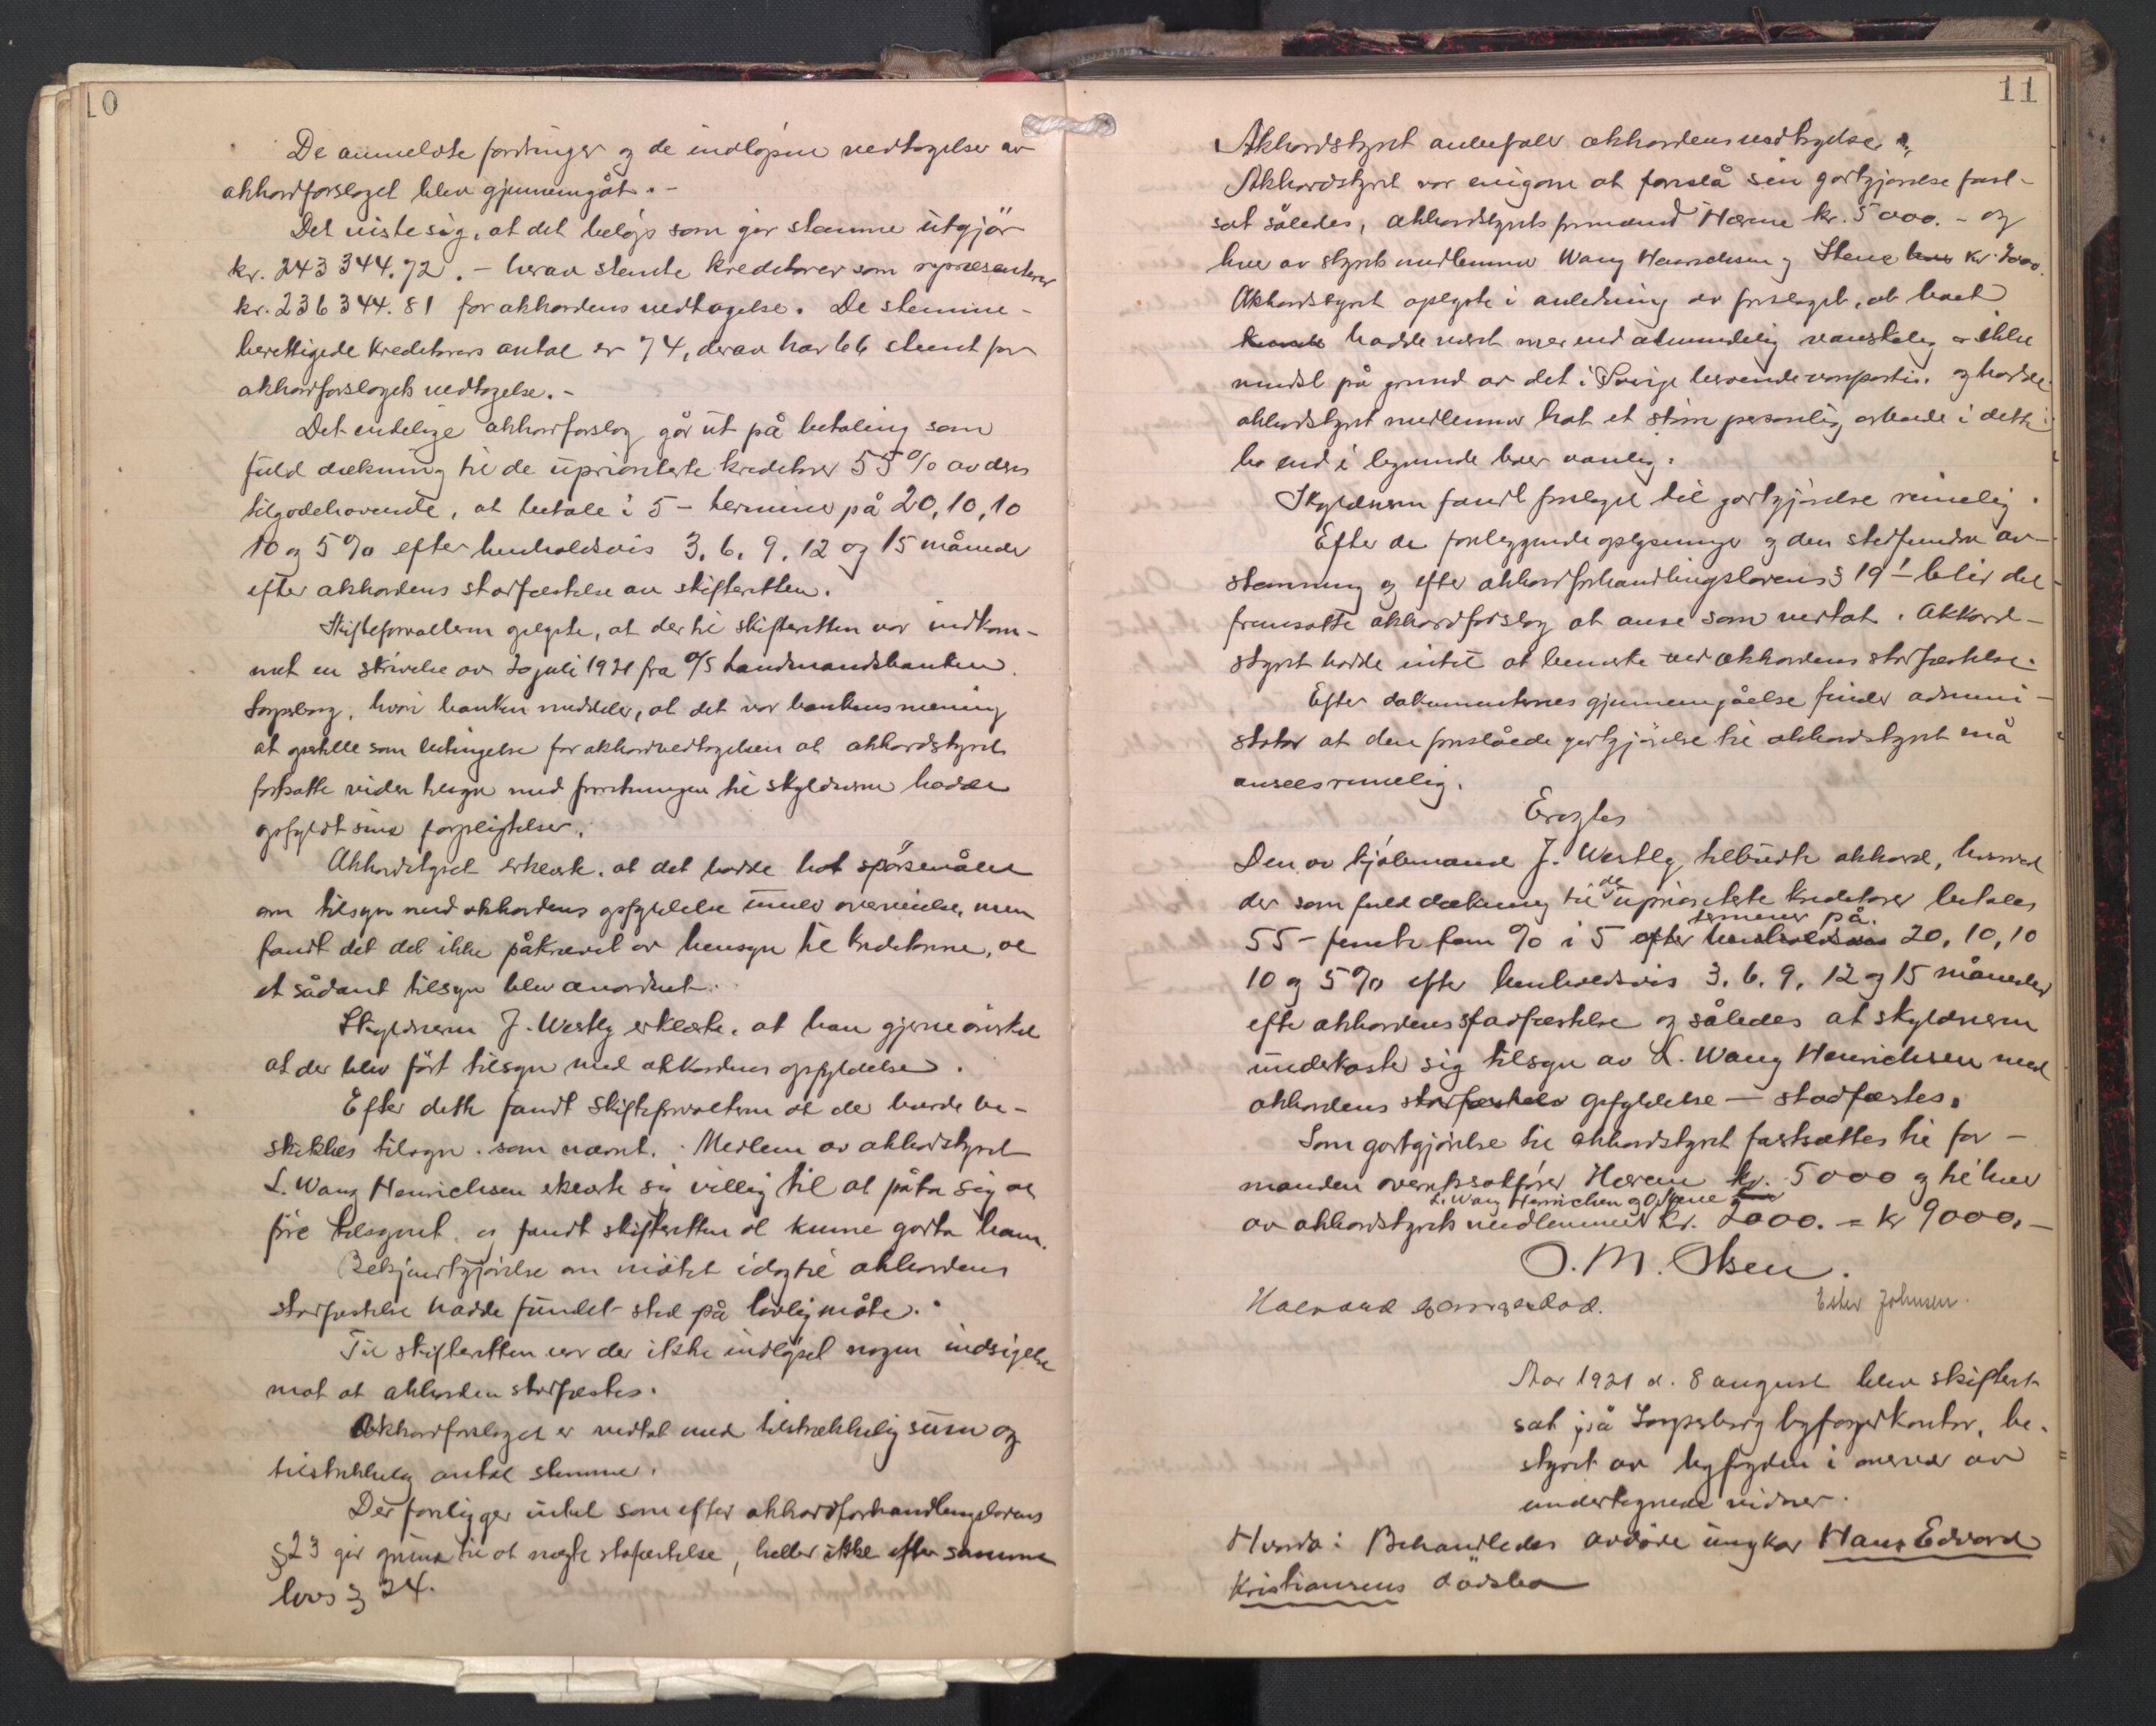 10
De anmeldte fordringer og de indløpne vedtagelser av
akkordforslaget blev gjennemgåt. -
Det viste sig, at det beløp som gir stemme utgjør
kr. 243 344.72. - herav stemte kreditorer som repræsenterer
kr. 236 344.81 for akkordens vedtagelse. De stemme-
berettigede kreditorers antal er 74, derav har 66 stemt for
akkordforslagets vedtagelse. -
Det endelige akkordforslag går ut på betaling som
fuld dækning til de uprioriterte kreditorer 55 % av deres
tilgodehavende, at betale i 5 - terminer på 20, 10, 10
10 og 5 % efter henholdsvis 3. 6. 9. 12 og 15 måneder
efter akkordens stadfæstelse av skifteretten.
Skifteforvalteren oplyste, at der til skifteretten var indkom-
met en skrivelse av 20 juli 1921 fra A/S Landmandsbanken
Sarpsborg, hvori banken meddeler, at det var bankens mening
at opstille som betingelse for akkordvedtagelsen at akkordstyret
fortsatte videre tilsyn med forretningen til skyldneren hadde
opfyldt sine forpligtelser.
Akkordstyret erklærte, at det hadde hat spørsmålet
om tilsyn med akkordens opfyldelse under overveielse, men
fandt det ikke påkrævet av hensyn til kreditorerne, at
et sådant tilsyn blev anordnet.
Skyldneren J. Westly erklærte, at han gjerne ønsket
at der blev ført tilsyn med akkordens opfyldelse.
Efter dette fandt skifteforvalteren at der burde be-
skikkes tilsyn som nævnt. Medlem av akkordstyret
L. Wang Henrichsen erklærte sig villig til at påta sig at
føre tilsynet, og fandt skifteretten at kunne godta ham.
Bekjendtgjørelse om møtet idag til akkordens
stadfæstelse hadde fundet sted på lovlig måte.
Til skifteretten var der ikke indløpet nogen indsigelse
mot at akkorden stadfæstes.
Akkordforslaget er vedtat med tilstrækkelig sum og
tilstrækkelig antal stemmer.
Der foreligger intet som efter akkordforhandlingslovens
§ 23 gir grund til at negte stadfæstelse, heller ikke efter samme
lovs § 24.
11
Akkordstyret anbefaler akkordens vedtagelse.
Akkordstyret var enig om at foreslå sin godtgjørelse fast-
sat således, akkordstyrets formand Hærem kr. 5000. - og
hver av styrets medlemmer Wang Henrichsen og Stene kr. 2000.
Akkordstyret oplyste i anledning av forslaget, at boet
hadde været mer end almindelig vanskelig - ikke
mindst på grund av det i Sverige beroende vareparti. og hadde
akkordstyrets medlemmer hat et større personlig arbeide i dette
bo end i lignende boer vanlig.
Skyldneren fandt forslaget til godtgjørelse rimelig.
Efter de foreliggende oplysninger og den stedfundne av-
stemning og efter akkordforhandlingslovens § 19 blir det
fremsatte akkordforslag at anse som vedtat. Akkord-
styret hadde intet at bemerke ved akkordens stadfæstelse.
Efter dokumenternes gjennemgåelse finder admini-
strator at den foreslåede godtgjørelse til akkordstyret må
ansees rimelig.
Eragtes
Den av kjøbmand J. Westly tilbudte akkord, hvorved
der som fuld dækning til de uprioriterte kreditorer betales
55 - femti fem % i 5 efter henholdsvis terminer på 20, 10, 10
10 og 5 % efter henholdsvis 3. 6. 9. 12 og 15 måneder
efter akkordens stadfæstelse og således at skyldneren
underkaster sig tilsyn av L. Wang Henrichsen med
akkordens stadfæstelse opfyldelse - stadfæstes.
Som godtgjørelse til akkordstyret fastsættes til for-
manden overretssakfører Hærem kr. 5000 og til hver
av akkordstyrets medlemmer L. Wang Henrichsen og O. Stene kr. 2000. = kr 9000. -
O. M. Olsen.
Ester Johnsen.
Aar 1921 d. 8 august blev skifteret
sat på Sarpsborg byfogedkontor, be-
styret av byfogden i nærvær av
undertegnede vidner.
Hvorda: Behandledes avdøde ungkar Hans Edvard
Kristiansens dødsbo